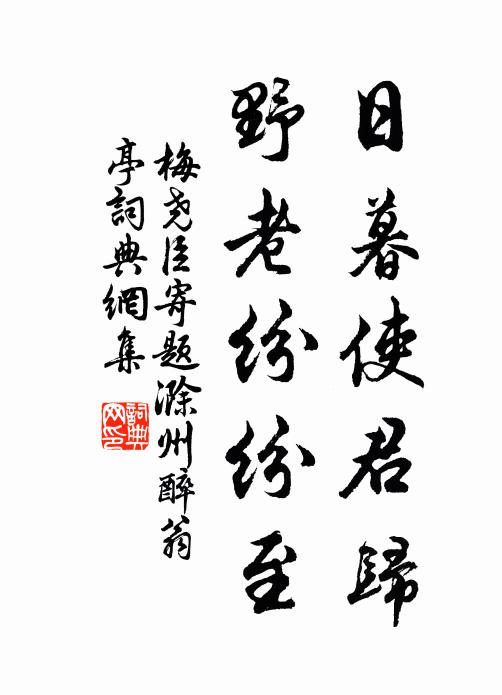 日暮使君歸
野老紛紛至
梅尧臣寄题滁州醉翁
亭詞典網集
詞典
网印